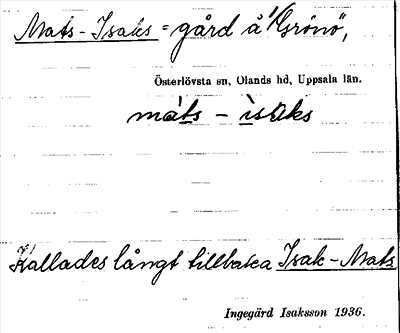 Mats-Isaks = gård å Grönö,
Österlövsta sn, Olands hd, Uppsala län.
máts - ìsăks
Kallades långt tillbaka Isak-Mats
Ingegärd Isaksson 1936.